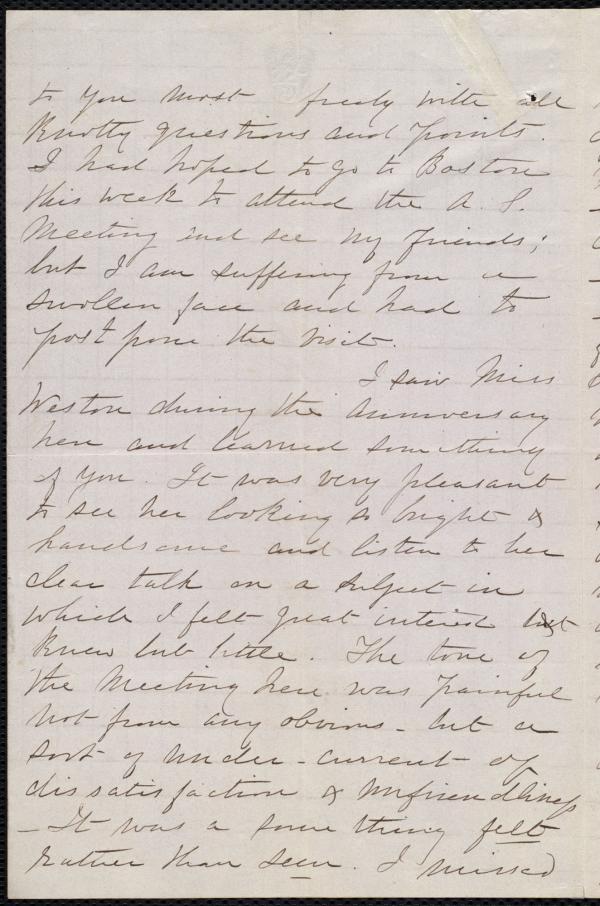 to you most freely with all
knotty questions and points.
I had hoped to go to Boston
this week to attend the A. S.
Meeting and see my friends;
but I am suffering from a
swollen face and had to
post pone the visit.
I saw Miss
Weston during the Anniversary
here and learned something
of you. It was very pleasant
to see her looking so bright &
handsome and listen to her
clear talk on a subject in
which I felt great interest but
knew but little. The tone of
the Meeting here was painful
not from any obvious - but a
sort of under-current of
dissatisfaction & unfriendliness
- It was a some thing felt
rather than seen. I missed